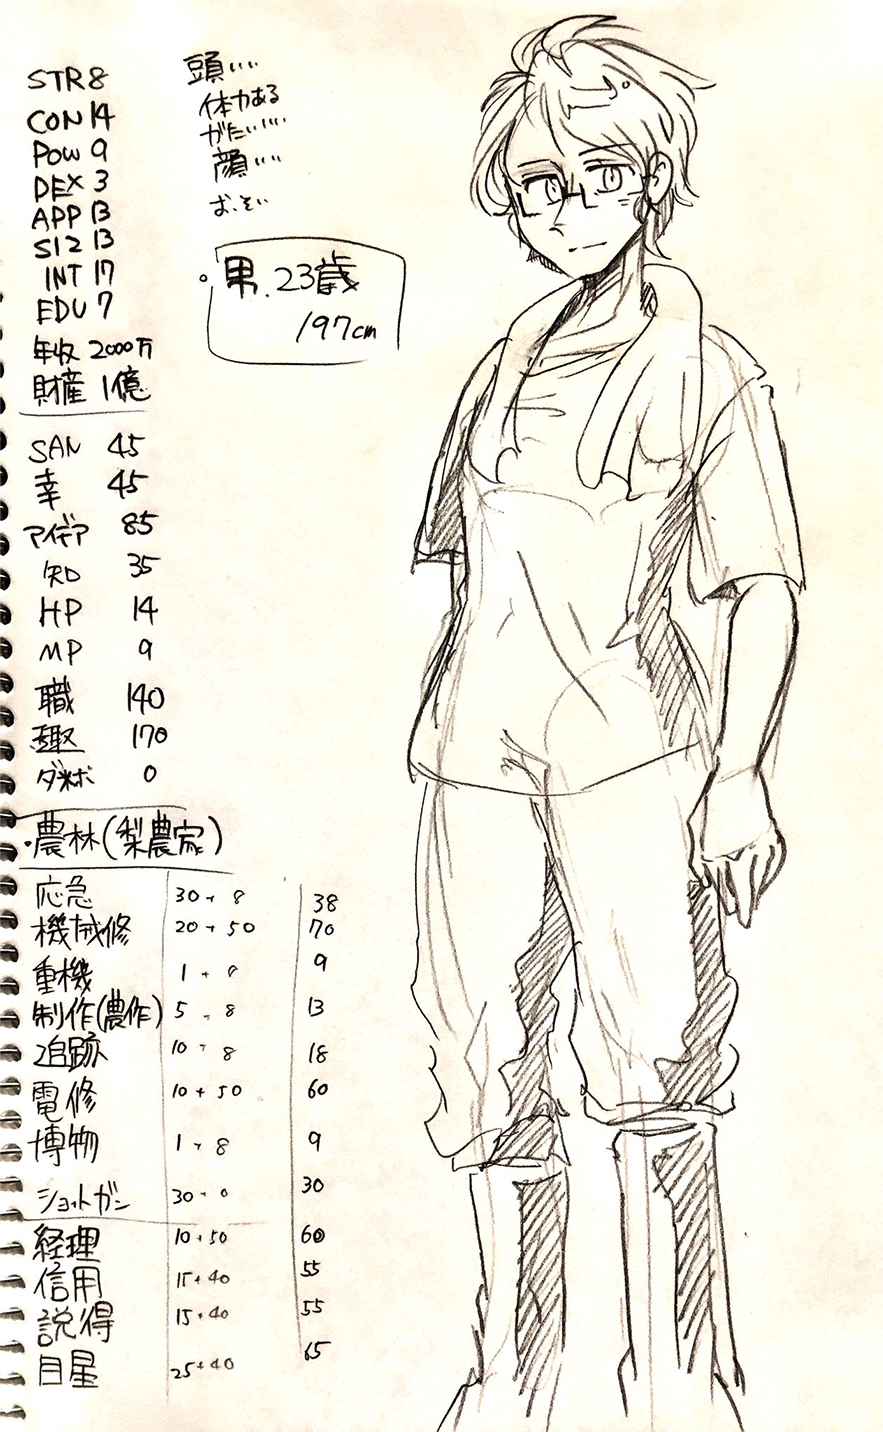 STR 8
CON 14
POW 9
DEX 3
APP 13
SIZ 13
INT 17
EDU 7
年収 2000万
財産 1億
頭いい
体力ある
がたいいい
顔いい
おそい
・男.23歳
197cm
SAN 45
幸 45
アイデア 85
知 35
HP 14
MP 9
職 140
趣 170
ダメボ 0
・農林(梨農家)
応急 30+8 38
機械修 20+50 70
重機 1+8 9
制作(農作) 5+8 13
追跡 10+8 18
電修 10+50 60
博物 1+8 9
ショットガン 30+0 30
経理 10+50 60
信用 15+40 55
説得 15+40 55
目星 25+40 65